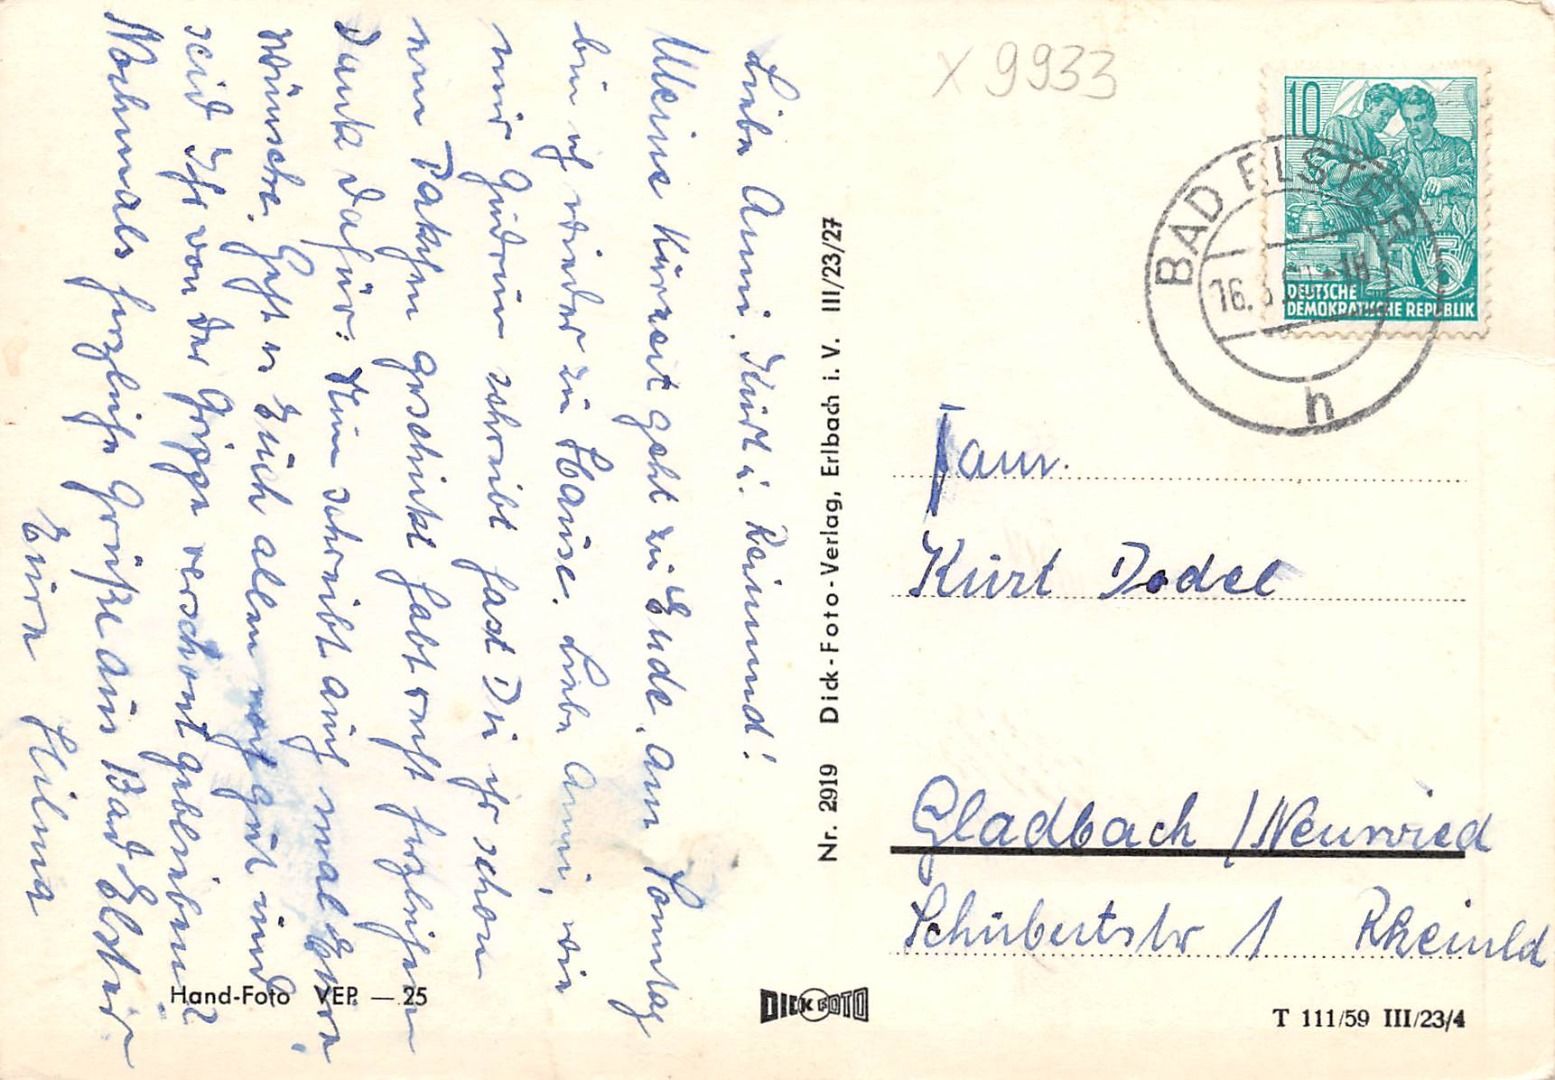 Liebe Anni, Kurt u. Reimund!
Meine Kurzeit geht zu Ende, am Sonntag
bin ich wieder zu Hause. Liebe Anni, wie
mir Gudrun schreibt hast Du ihr schon
ein Pakchen geschickt habt recht herzlichen
Dank dafür. Nun schreibt auch mal Eure
Wünsche. Geht es Euch allen noch gut und
seid Ihr von der Grippe verschont geblieben?
Nochmals herzliche Grüße aus Bad Elster
Eure Hilma
Hand-Foto VEP. — 25
Nr. 2919 Dick-Foto-Verlag, Erlbach i. V. III/23/27
DICK FOTO
X 9933
10
5
DEUTSCHE
DEMOKRATISCHE REPUBLIK
BAD ELSTER
16.3. -18
h
Fam.
Kurt Dodel
Gladbach / Neuwied
Schubertstr 1 Rheinld
T 111/59 III/23/4